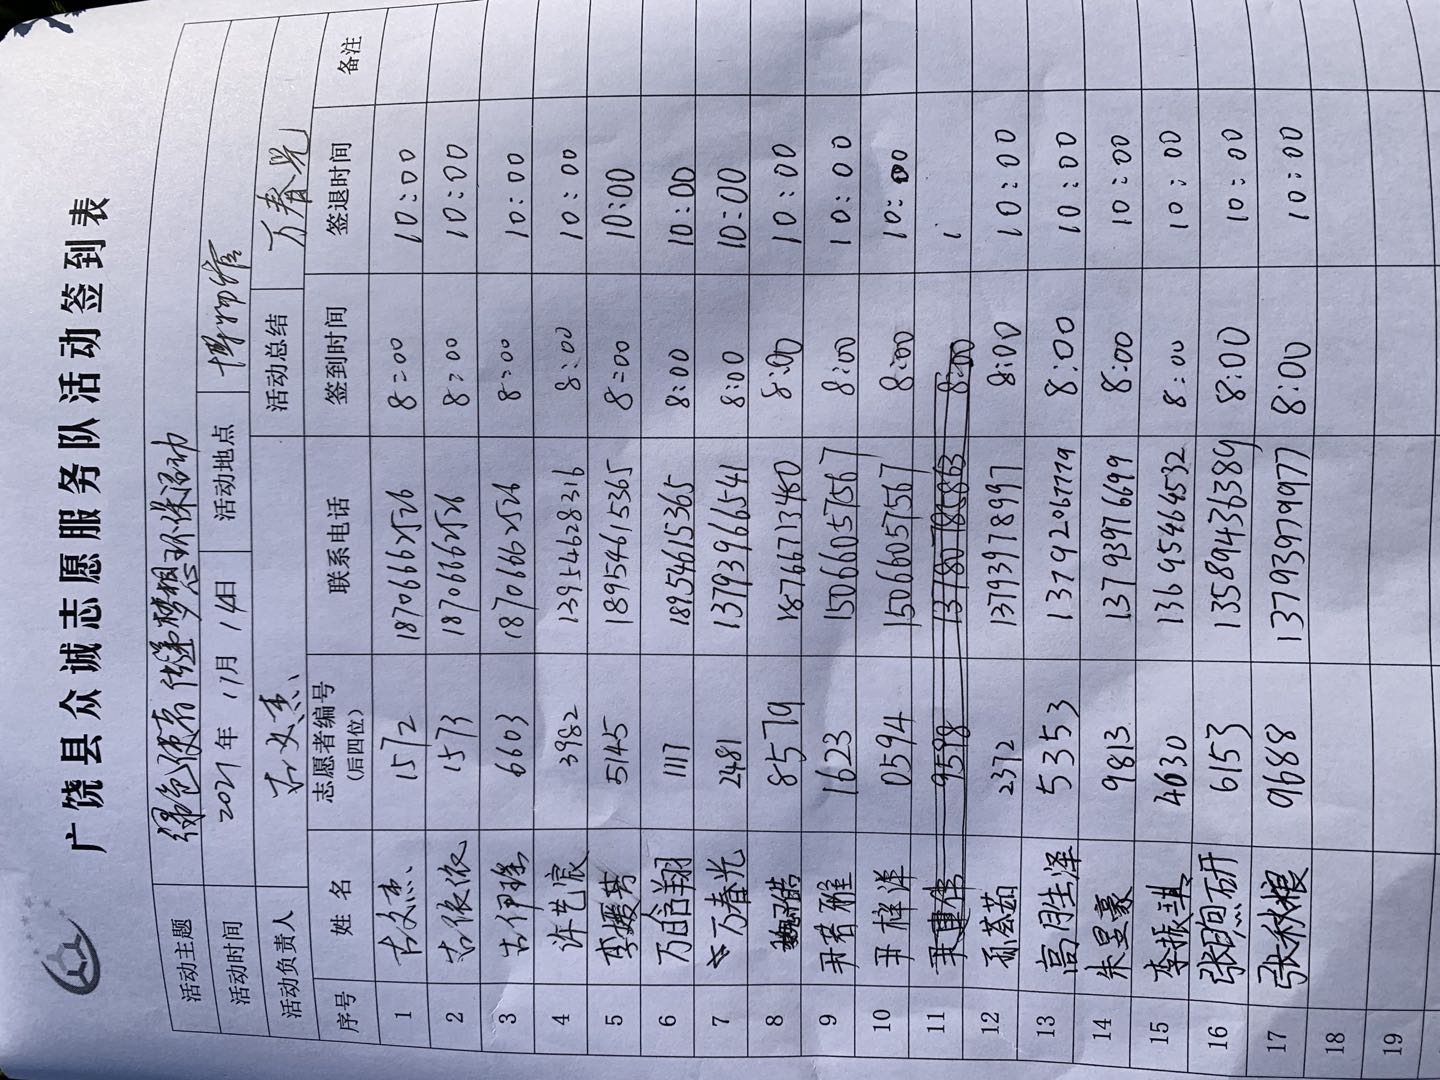 广饶县众诚志愿服务队活动签到表
活动主题 绿色使者 传递梦想环保活动
活动时间 2021年 11月 14日 活动地点 博物馆
活动负责人 活动总结 万春光
序号 姓名 志愿者编号(后四位) 联系电话 签到时间 签退时间 备注
1 1572 18706662526 8:00 10:00
2 1573 18706662526 8:00 10:00
3 6603 18706662526 8:00 10:00
4 许艺宸 3982 13954628316 8:00 10:00
5 李媛芳 5145 18954615365 8:00 10:00
6 万含翔 1117 18954615365 8:00 10:00
7 万春光 2481 13793966541 8:00 10:00
8 8579 18766713480 8:00 10:00
9 尹若雅 1623 15066057567 8:00 10:00
10 尹梓洋 0594 15066057567 8:00 10:00
11 8:00
12 2372 13793978997 8:00 10:00
13 高胜泽 5353 13792067779 8:00 10:00
14 朱昱豪 9813 13793976699 8:00 10:00
15 李振琪 4630 13695464532 8:00 10:00
16 张煦研 6153 13589436389 8:00 10:00
17 张秋娘 9688 13793979977 8:00 10:00
18
19